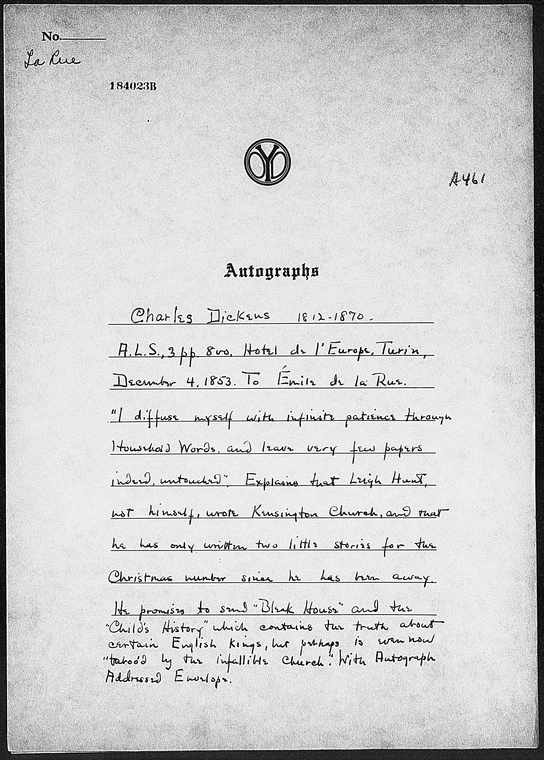 No.
La Rue
184023B
A461
Autographs
Charles Dickens 1812-1870.
A.L.S., 3 pp. 8vo. Hotel de l'Europe, Turin,
December 4, 1853. To Émile de la Rue.
"I diffuse myself with infinite patience through
Household Words, and leave very few papers
indeed, untouched". Explains that Leigh Hunt,
not himself, wrote Kensington Church, and that
he has only written two little stories for the
Christmas number since he has been away.
He promises to send "Bleak House" and the
"Child's History" which contains the truth about
certain English Kings, but perhaps is even now
"taboo'd by the infallible Church". With Autograph
Addressed Envelope.